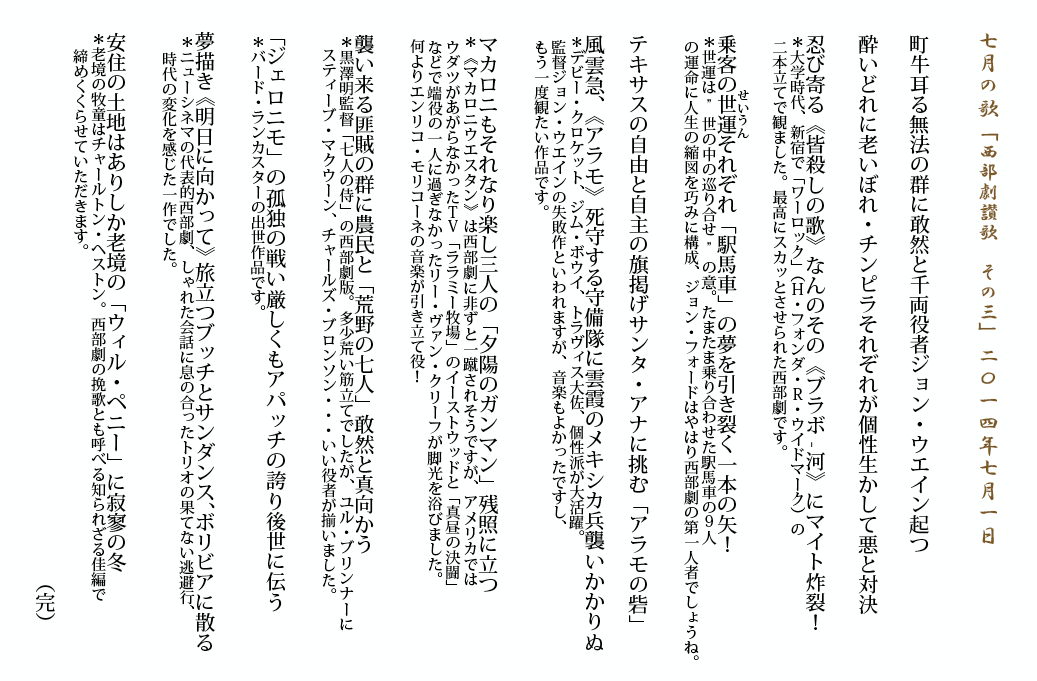 七月の歌「西部劇讃歌　その三」二〇一四年七月一日
町牛耳る無法の群に敢然と千両役者ジョン・ウエイン起つ
酔いどれに老いぼれ・チンピラそれぞれが個性生かして悪と対決
忍び寄る《皆殺しの歌》なんのその《ブラボ-河》にマイト炸裂！
＊大学時代、新宿で「ワーロック」（H・フォンダ・R・ウイドマーク）の
二本立てで観ました。最高にスカッとさせられた西部劇です。
乗客の世運それぞれ「駅馬車」の夢を引き裂く一本の矢！
せいうん
＊世運は”世の中の巡り合せ”の意。たまたま乗り合わせた駅馬車の９人
の運命に人生の縮図を巧みに構成、ジョン・フォードはやはり西部劇の第一人者でしょうね。
テキサスの自由と自主の旗掲げサンタ・アナに挑む「アラモの砦」
風雲急、《アラモ》死守する守備隊に雲霞のメキシカ兵襲いかかりぬ
＊デビー・クロケット、ジム・ボウイ、トラヴィス大佐、個性派が大活躍。
監督ジョン・ウエインの失敗作といわれますが、音楽もよかったですし、
もう一度観たい作品です。
マカロニもそれなり楽し三人の「夕陽のガンマン」残照に立つ
＊《マカロニウエスタン》は西部劇に非ずと一蹴されそうですが、アメリカでは
ウダツがあがらなかったTV「ララミー牧場」のイーストウッドと「真昼の決闘」
などで端役の一人に過ぎなかったリー・ヴァン・クリーフが脚光を浴びました。
何よりエンリコ・モリコーネの音楽が引き立て役！
襲い来る匪賊の群に農民と「荒野の七人」敢然と真向かう
＊黒澤明監督「七人の侍」の西部劇版。多少荒い筋立てでしたが、ユル・ブリンナーに
スティーブ・マクウーン、チャールズ・ブロンソン・・・いい役者が揃いました。
「ジェロニモ」の孤独の戦い厳しくもアパッチの誇り後世に伝う
＊バード・ランカスターの出世作品です。
夢描き《明日に向かって》旅立つブッチとサンダンス、ボリビアに散る
＊ニューシネマの代表的西部劇、しゃれた会話に息の合ったトリオの果てない逃避行、
時代の変化を感じた一作でした。
安住の土地はありしか老境の「ウィル・ペニー」に寂寥の冬
＊老境の牧童はチャールトン・ヘストン。西部劇の挽歌とも呼べる知られざる佳編で
締めくくらせていただきます。
（完）